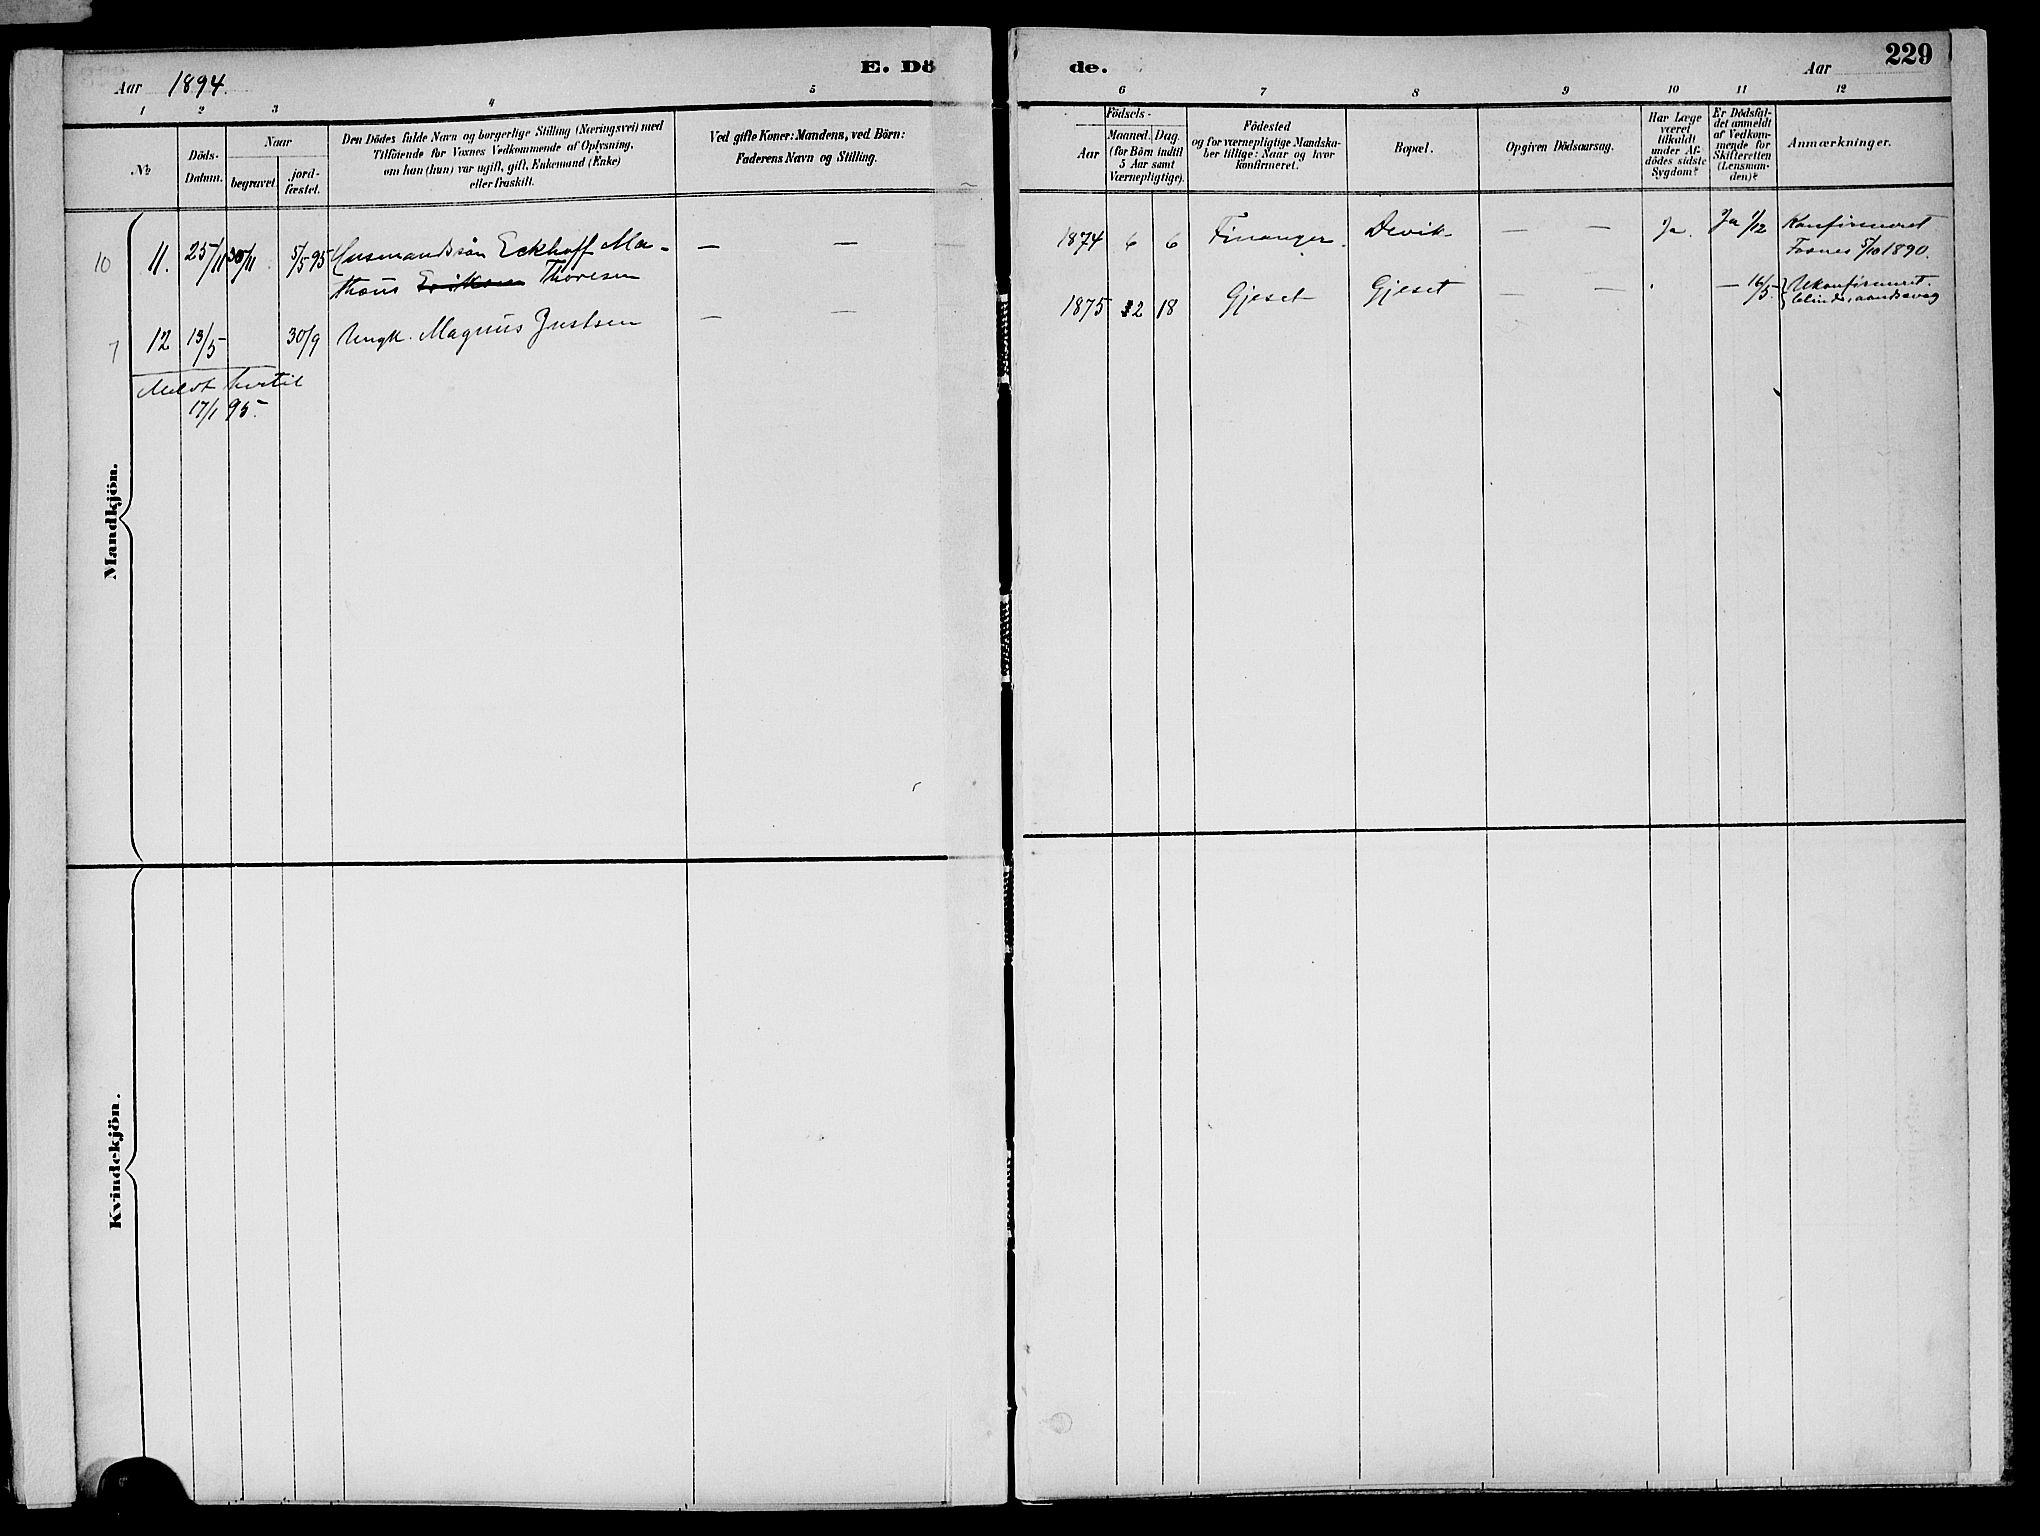 Aar 1894.
E. Dö
de.
Aar
229
1 2 3 4 5
6 7 8 9 10 11 12
No
Döds-
Datum.
Naar
begravet.
jord-
fæstet.
Den Dödes fulde Navn og borgerlige Stilling (Næringsvei) med
Tilföiende for Voxnes Vedkommende af Oplysning,
om hun (hun) var ugift, gift, Enkemand (Enke)
eller fraskilt.
Ved gifte Koner: Mandens, ved Börn:
Faderens Navn og Stilling.
Födsels-
Aar
Maaned.
Dag.
(for Börn indtil
5 Aar samt
Værnepligtige).
Födested
og for værnepligtige Mandska-
ber tillige: Naar og hvor
konfirmeret.
Bopæl.
Opgiven Dödsaarsag.
Har Læge
været
tilkaldt
under Af-
dödes sidste
Sygdom?
Er Dödsfal-
det anmeldt
af Vedkom-
mende for
Skifteretten
(Lensman-
den)?
Anmærkninger.
10 11. 25/11 30/11 5/5 95 Husmandssön Eckhoff Ma-
thæus Thoresen
— —
1874 6 6 Finanger. Devik — — Ja. Ja 1/12 Konfirmeret
Fosnes 5/10 1890.
7 12 13/5 30/9 Ungk. Magnus Justsen
— —
1875 2 18 Gjeset Gjeset — — — 16/5. Ukonfirmeret.
blind, aandssvag
Meldt hertil
17/1 95.
Mandkjön.
Kvindekjön.